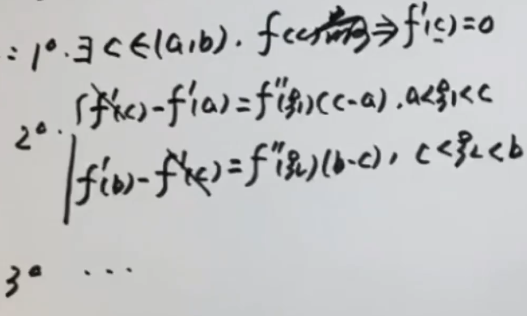 : 1°. ∃ c ∈ (a,b). f(c) ⇒ f'(c) = 0
2°. f'(c) - f'(a) = f''(ξ₁)(c-a), a<ξ₁<c
f'(b) - f'(c) = f''(ξ₂)(b-c), c<ξ₂<b
3° ...